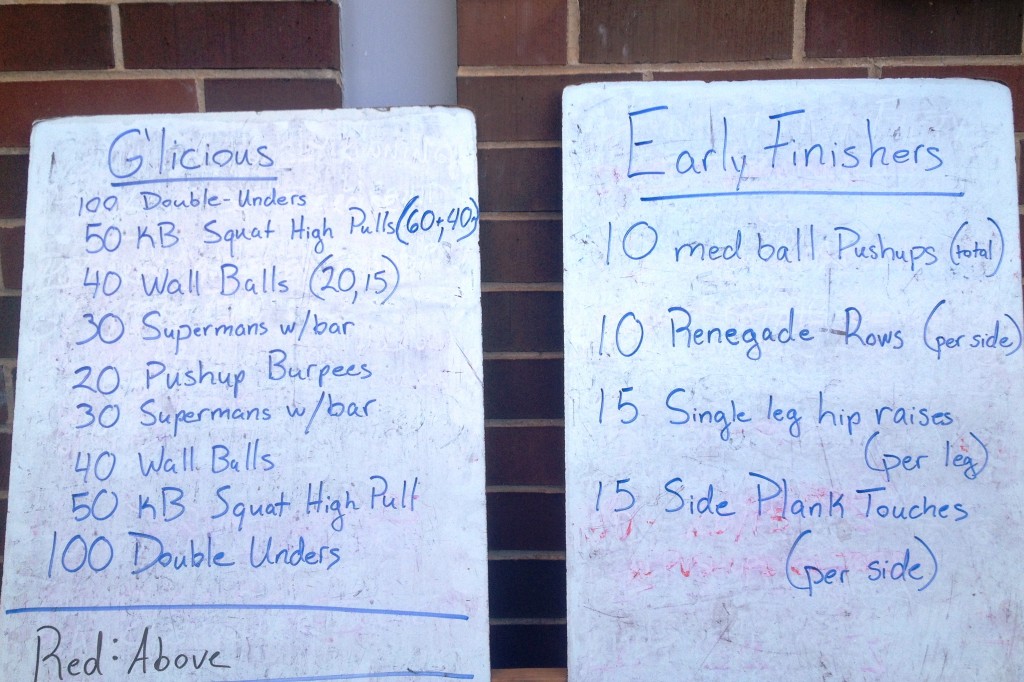 G'licious
100 Double-Unders
50 KB Squat High Pulls (60+,40+)
40 Wall Balls (20,15)
30 Supermans w/bar
20 Pushup Burpees
30 Supermans w/bar
40 Wall Balls
50 KB Squat High Pull
100 Double Unders
Red: Above
Early Finishers
10 med ball Pushups (total)
10 Renegade Rows (per side)
15 Single leg hip raises
(per leg)
15 Side Plank Touches
(per side)